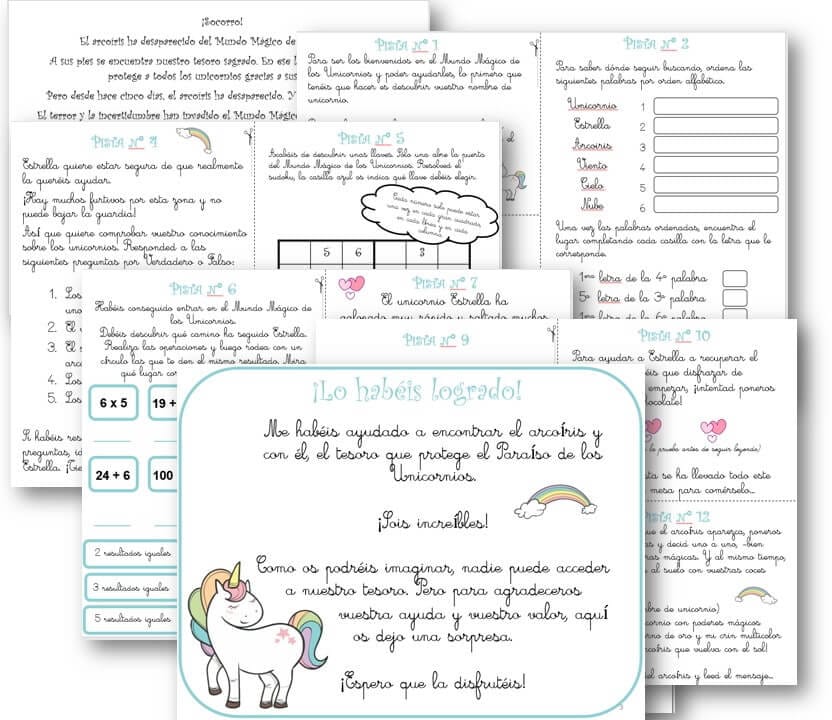 ¡Socorro!
El arcoíris ha desaparecido del Mundo Mágico de
A sus pies se encuentra nuestro tesoro sagrado. En ese
protege a todos los unicornios gracias a sus
Pero desde hace cinco días, el arcoíris ha desaparecido. Y
El terror y la incertidumbre han invadido el Mundo Mágico
Pista nº 1
Para ser los bienvenidos en el Mundo Mágico de
los Unicornios y poder ayudarles, lo primero que
tenéis que hacer es descubrir vuestro nombre de
unicornio.
el
Pista nº 2
Para saber dónde seguir buscando, ordena las
siguientes palabras por orden alfabético.
Unicornio 1
Estrella 2
Arcoiris 3
Viento 4
Cielo 5
Nube 6
Una vez las palabras ordenadas, encuentra el
lugar completando cada casilla con la letra que le
corresponde.
1era letra de la 4a palabra
5a letra de la 3a palabra
1era letra de la 6a palabra
Pista nº 4
Estrella quiere estar segura de que realmente
la queréis ayudar.
¡Hay muchos furtivos por esta zona y no
puede bajar la guardia!
Así que quiere comprobar vuestro conocimiento
sobre los unicornios. Responded a las
siguientes preguntas por Verdadero o Falso:
1. Los
2. El
3. El
4. Los
5. Los
Si habéis
preguntas,
Estrella.
Pista nº 5
Acabáis de descubrir unas llaves. Solo una abre la puerta
del Mundo Mágico de los Unicornios. Resolved el
sudoku, la casilla azul os indica qué llave debéis elegir.
Cada número solo puede estar
una vez en cada gran cuadrado,
en cada línea y en cada
columna.
5 6 3
Pista nº 6
Habéis conseguido entrar en el Mundo Mágico de
los Unicornios.
Debéis descubrir qué camino ha seguido Estrella.
Realiza las operaciones y luego rodea con un
círculo las que te den el mismo resultado. Mira
qué lugar
6 x 5 19 +
24 + 6 100
2 resultados iguales
3 resultados iguales
5 resultados iguales
Pista nº 7
El unicornio Estrella ha
galopado muy rápido y saltado muchos
Pista nº 9
Pista nº 10
Para ayudar a Estrella a recuperar el
éis que disfrazar de
empezar, ¡intentad poneros
chocolate!
la prueba antes de seguir leyendo)
sta se ha llevado todo este
mesa para comérselo...
Pista nº 12
ue el arcoíris aparezca, poneros
as y decid uno a uno, -bien
ras mágicas. Y al mismo tiempo,
al suelo con vuestras coces
bre de unicornio)
icornio con poderes mágicos
rno de oro y mi crin multicolor
coíris que vuelva con el sol!
el arcoíris y leed el mensaje...
¡Lo habéis logrado!
Me habéis ayudado a encontrar el arcoíris y
con él, el tesoro que protege el Paraíso de los
Unicornios.
¡Sois increíbles!
Como os podréis imaginar, nadie puede acceder
a nuestro tesoro. Pero para agradeceros
vuestra ayuda y vuestro valor, aquí
os dejo una sorpresa.
¡Espero que la disfrutéis!